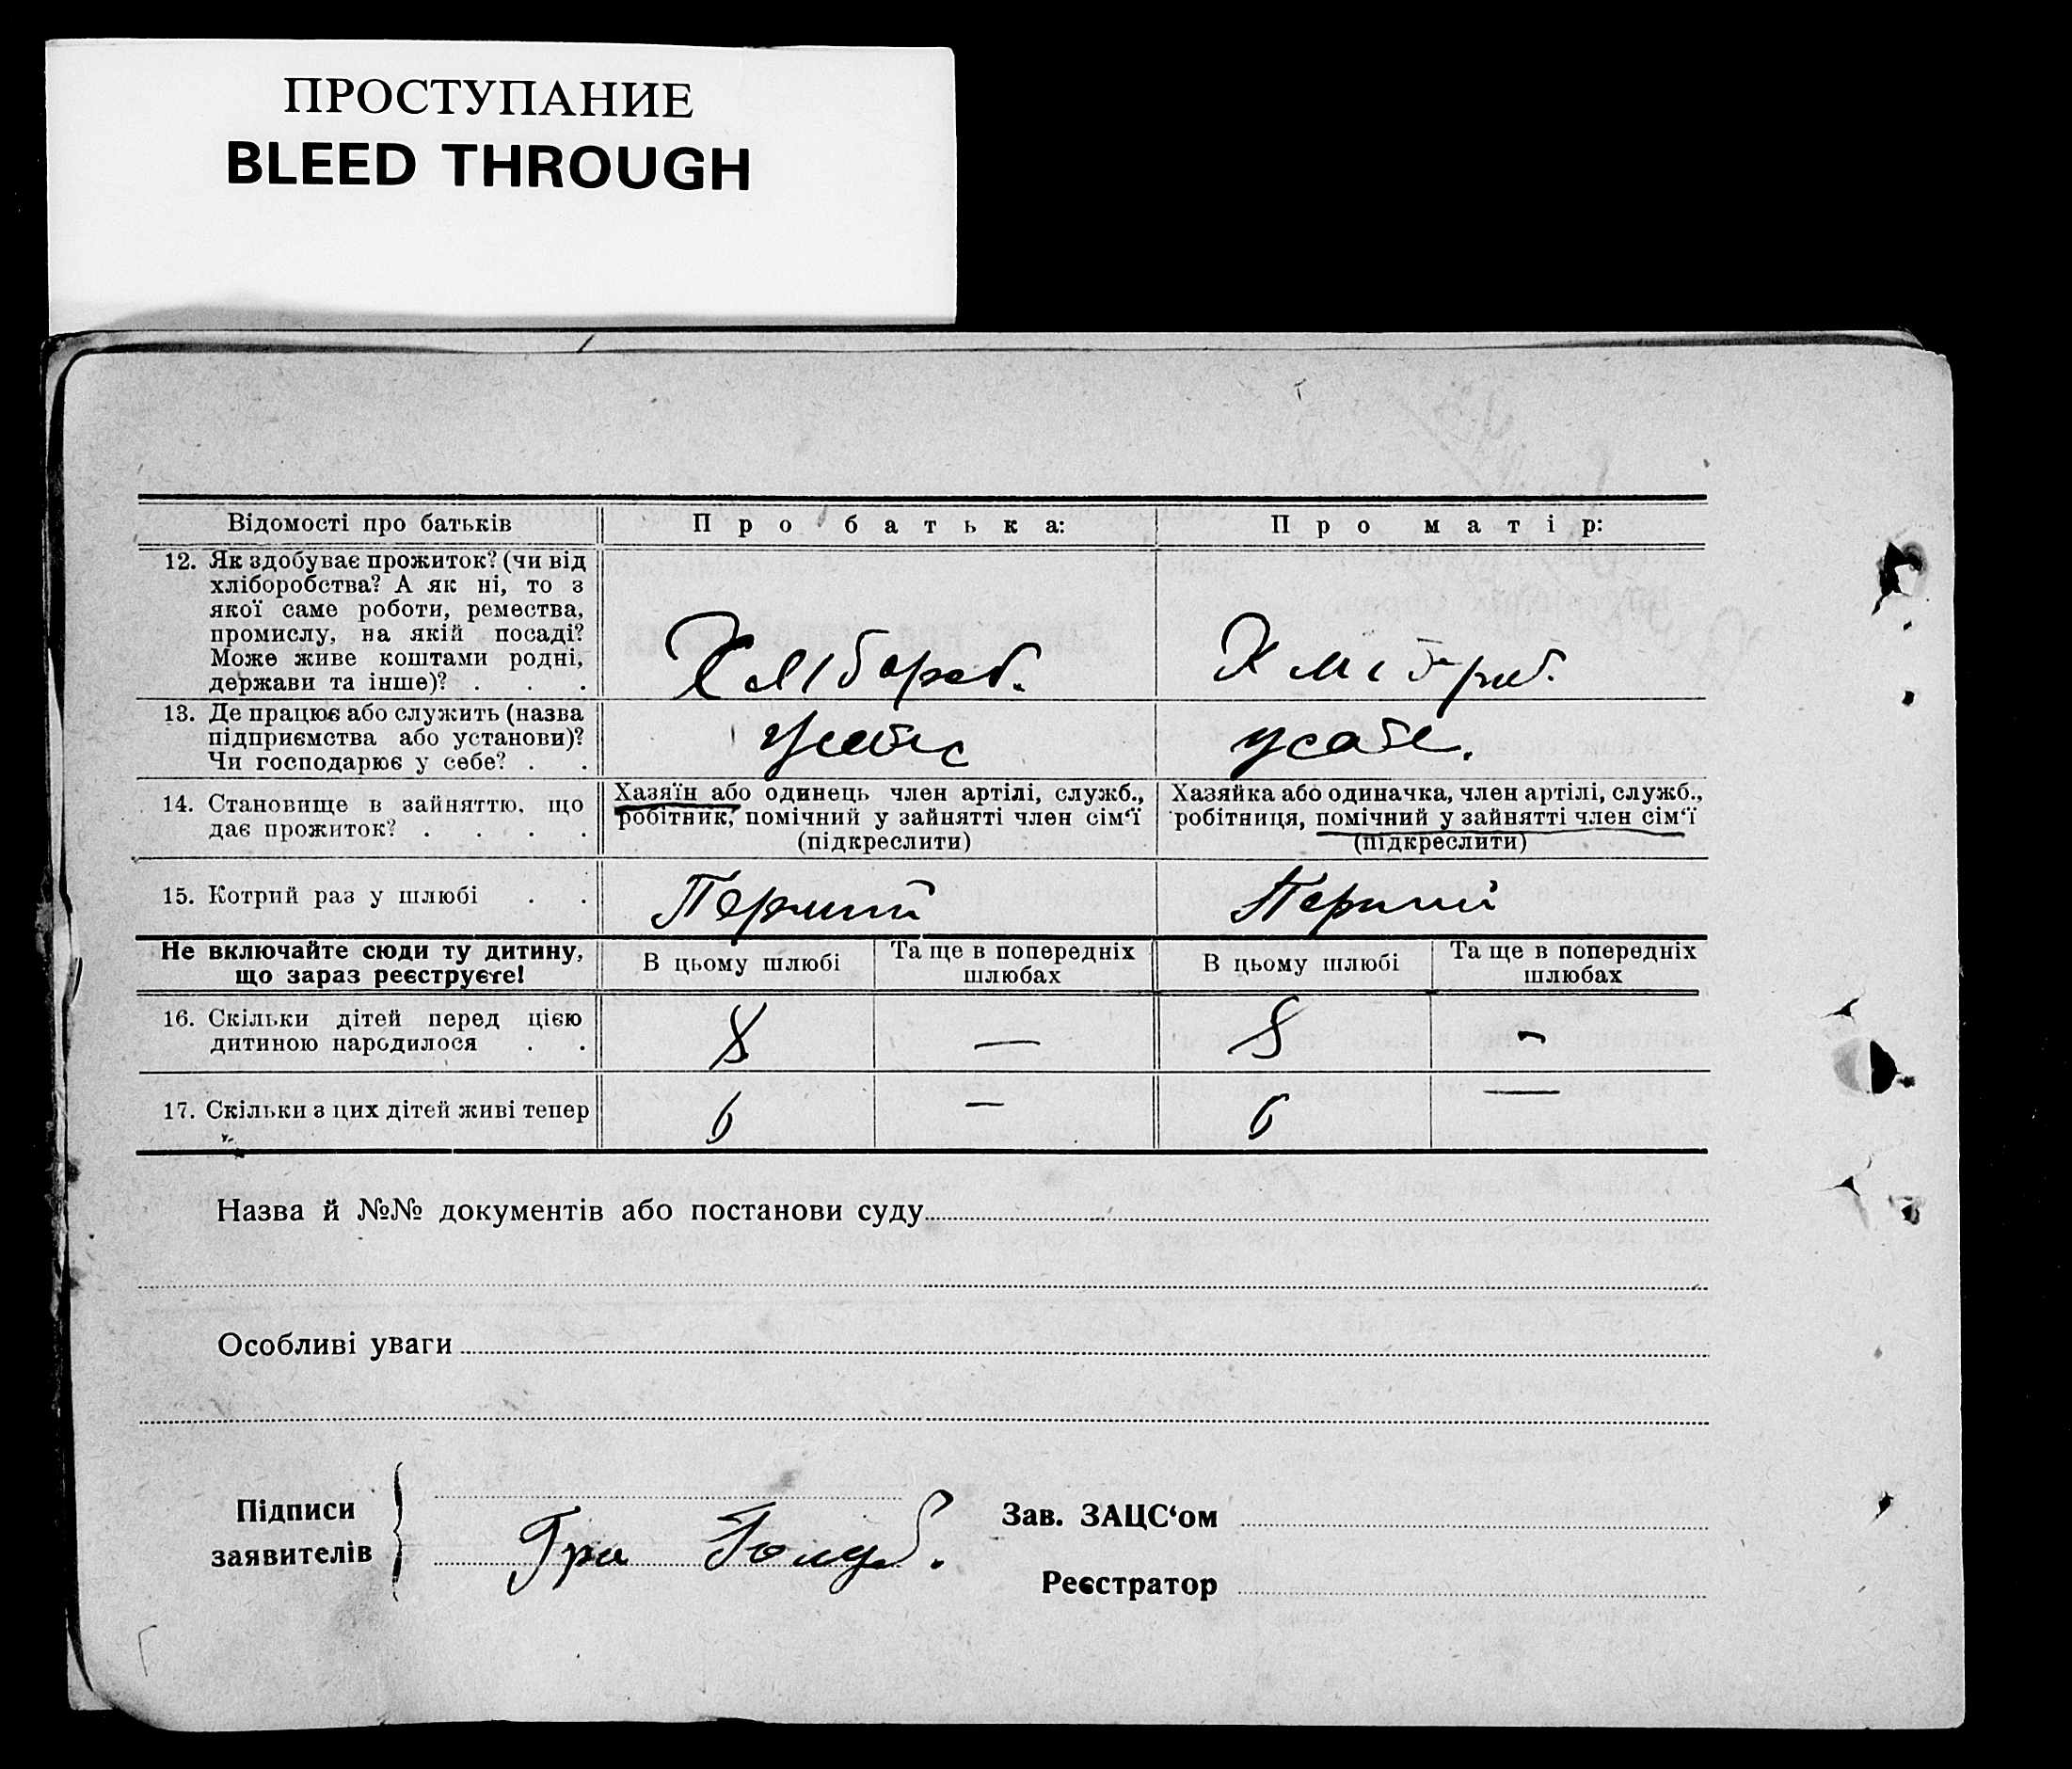 ПРОСТУПАНИЕ
BLEED THROUGH
Відомості про батьків
Про батька:
Про матір:
12. Як здобуває прожиток? (чи від
хліборобства? А як ні, то з
якої саме роботи, ремества,
промислу, на якій посаді?
Може живе коштами родні,
держави та інше)? . . .
Хлібороб.
Хлібороб.
13. Де працює або служить (назва
підприємства або установи)?
Чи господарює у себе? . .
У себе
у себе.
14. Становище в зайняттю, що
дає прожиток? . . . .
Хазяїн або одинець член артілі, служб.,
робітник, помічний у зайнятті член сім‘ї
(підкреслити)
Хазяйка або одиначка, член артілі, служб.,
робітниця, помічний у зайнятті член сім‘ї
(підкреслити)
15. Котрий раз у шлюбі . .
Перший
Перший
Не включайте сюди ту дитину,
що зараз реєструєте!
В цьому шлюбі
Та ще в попередніх
шлюбах
В цьому шлюбі
Та ще в попередніх
шлюбах
16. Скільки дітей перед цією
дитиною народилося . .
8
—
8
-
17. Скільки з цих дітей живі тепер
6
—
6
—
Назва й №№ документів або постанови суду
Особливі уваги
Підписи
заявителів
Гри Голуб.
Зав. ЗАЦС‘ом
Реєстратор